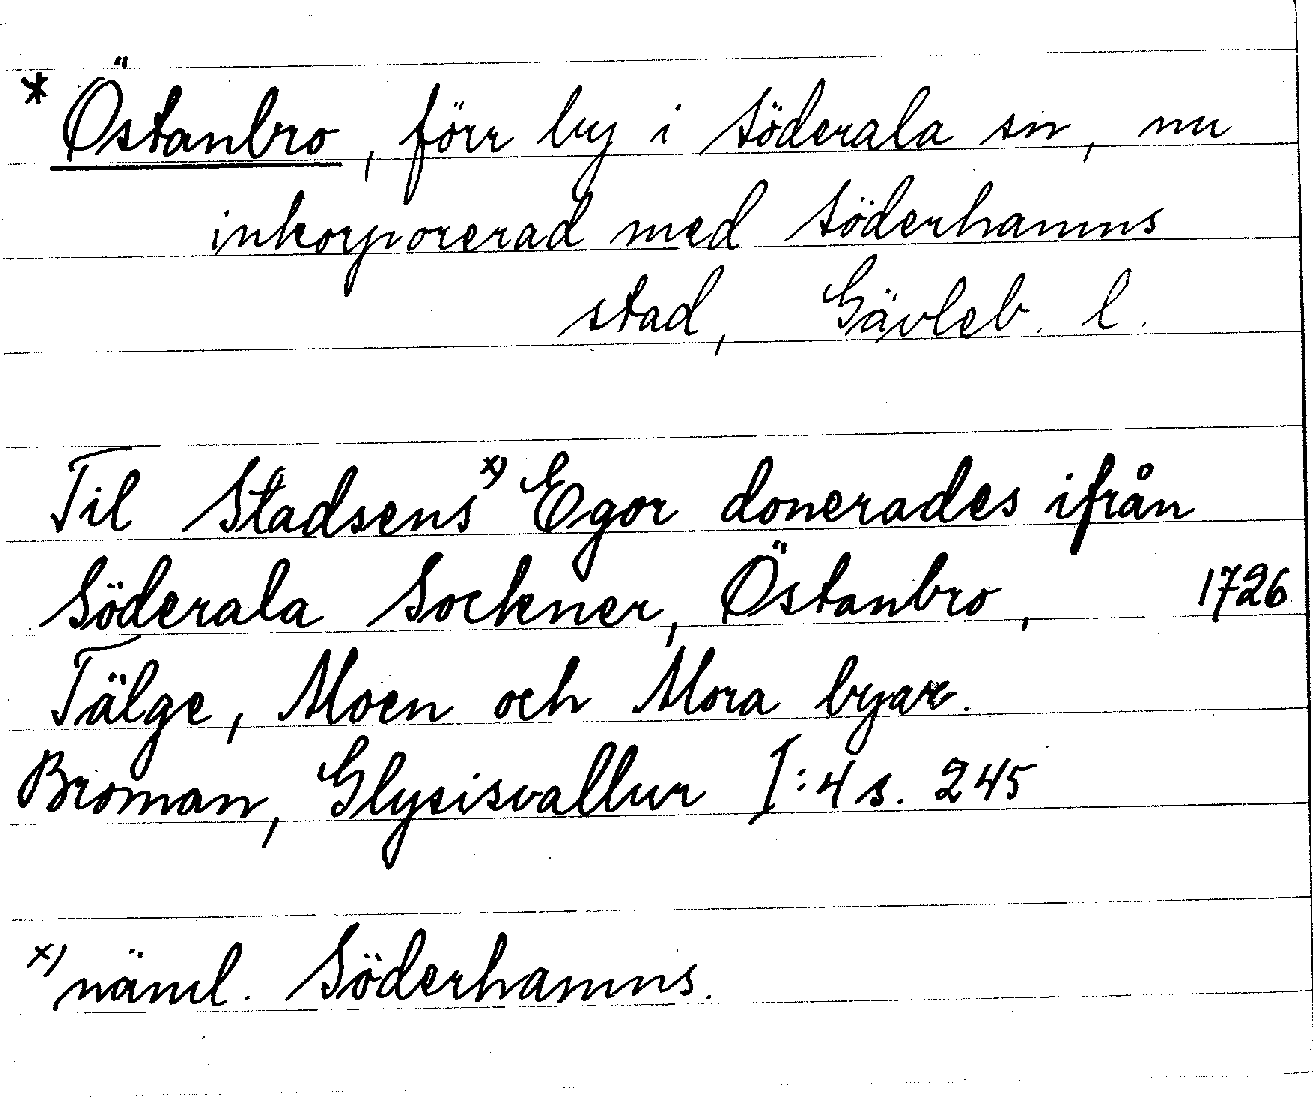 * Östanbro, förr by i Söderala sn, nu
inkorporerad med Söderhamns
stad, Gävleb. l.
Til Stadsens x) Egor donerades ifrån
Söderala Sockner, Östanbro, 1726
Tälge, Moen och Mora byar.
Broman, Glysisvallur I:4 s. 245
x) näml. Söderhamns.